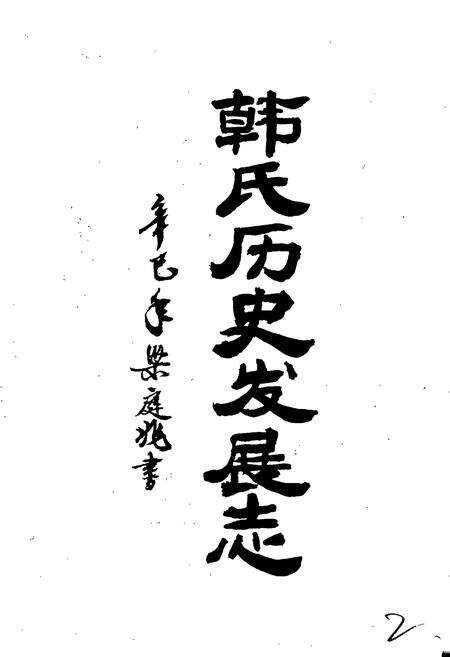 韩氏历史发展志
辛巳年梁庭兆書
2